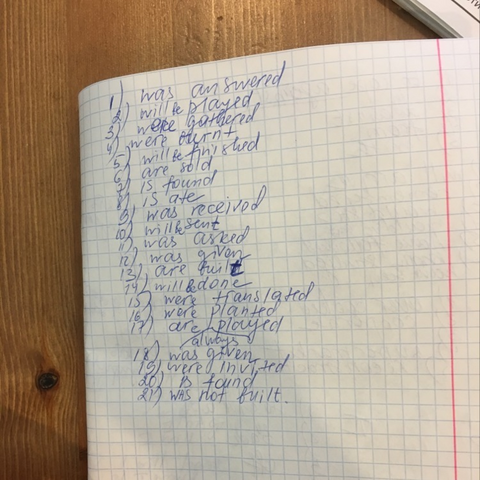 1) was answered
2) will be played
3) were gathered
4) were burnt
5) will be finished
6) are sold
7) is found
8) is ate
9) was received
10) will be sent
11) was asked
12) was given
13) are built
14) will be done
15) were translated
16) were planted
17) are played
always
18) was given
19) were invited
20) is found
21) was not built.